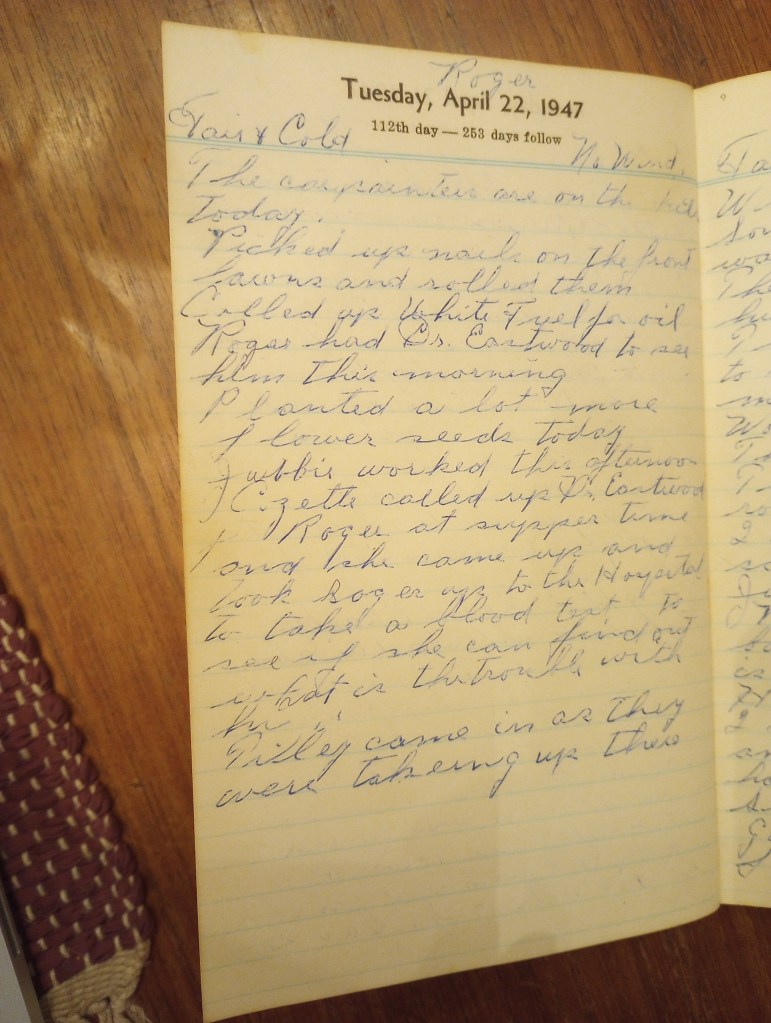 Roger
Tuesday, April 22, 1947
112th day — 253 days follow
Fair & Cold No Wind.
The are on the
Today.
Picked up nails on the front
lawns and rolled them
Called up White Fuel for oil
Roger had Dr. Eastwood to see
him this morning
Planted a lot more
flower seeds today
worked this afternoon
called up Dr. Eastwood
Roger at supper time
and she came up and
took Roger up to the Hospital
to take a blood test to
see if she can find out
what is the trouble with
him
came in as they
were takeing up there
Fa
W
Th
to
m
W
is
an